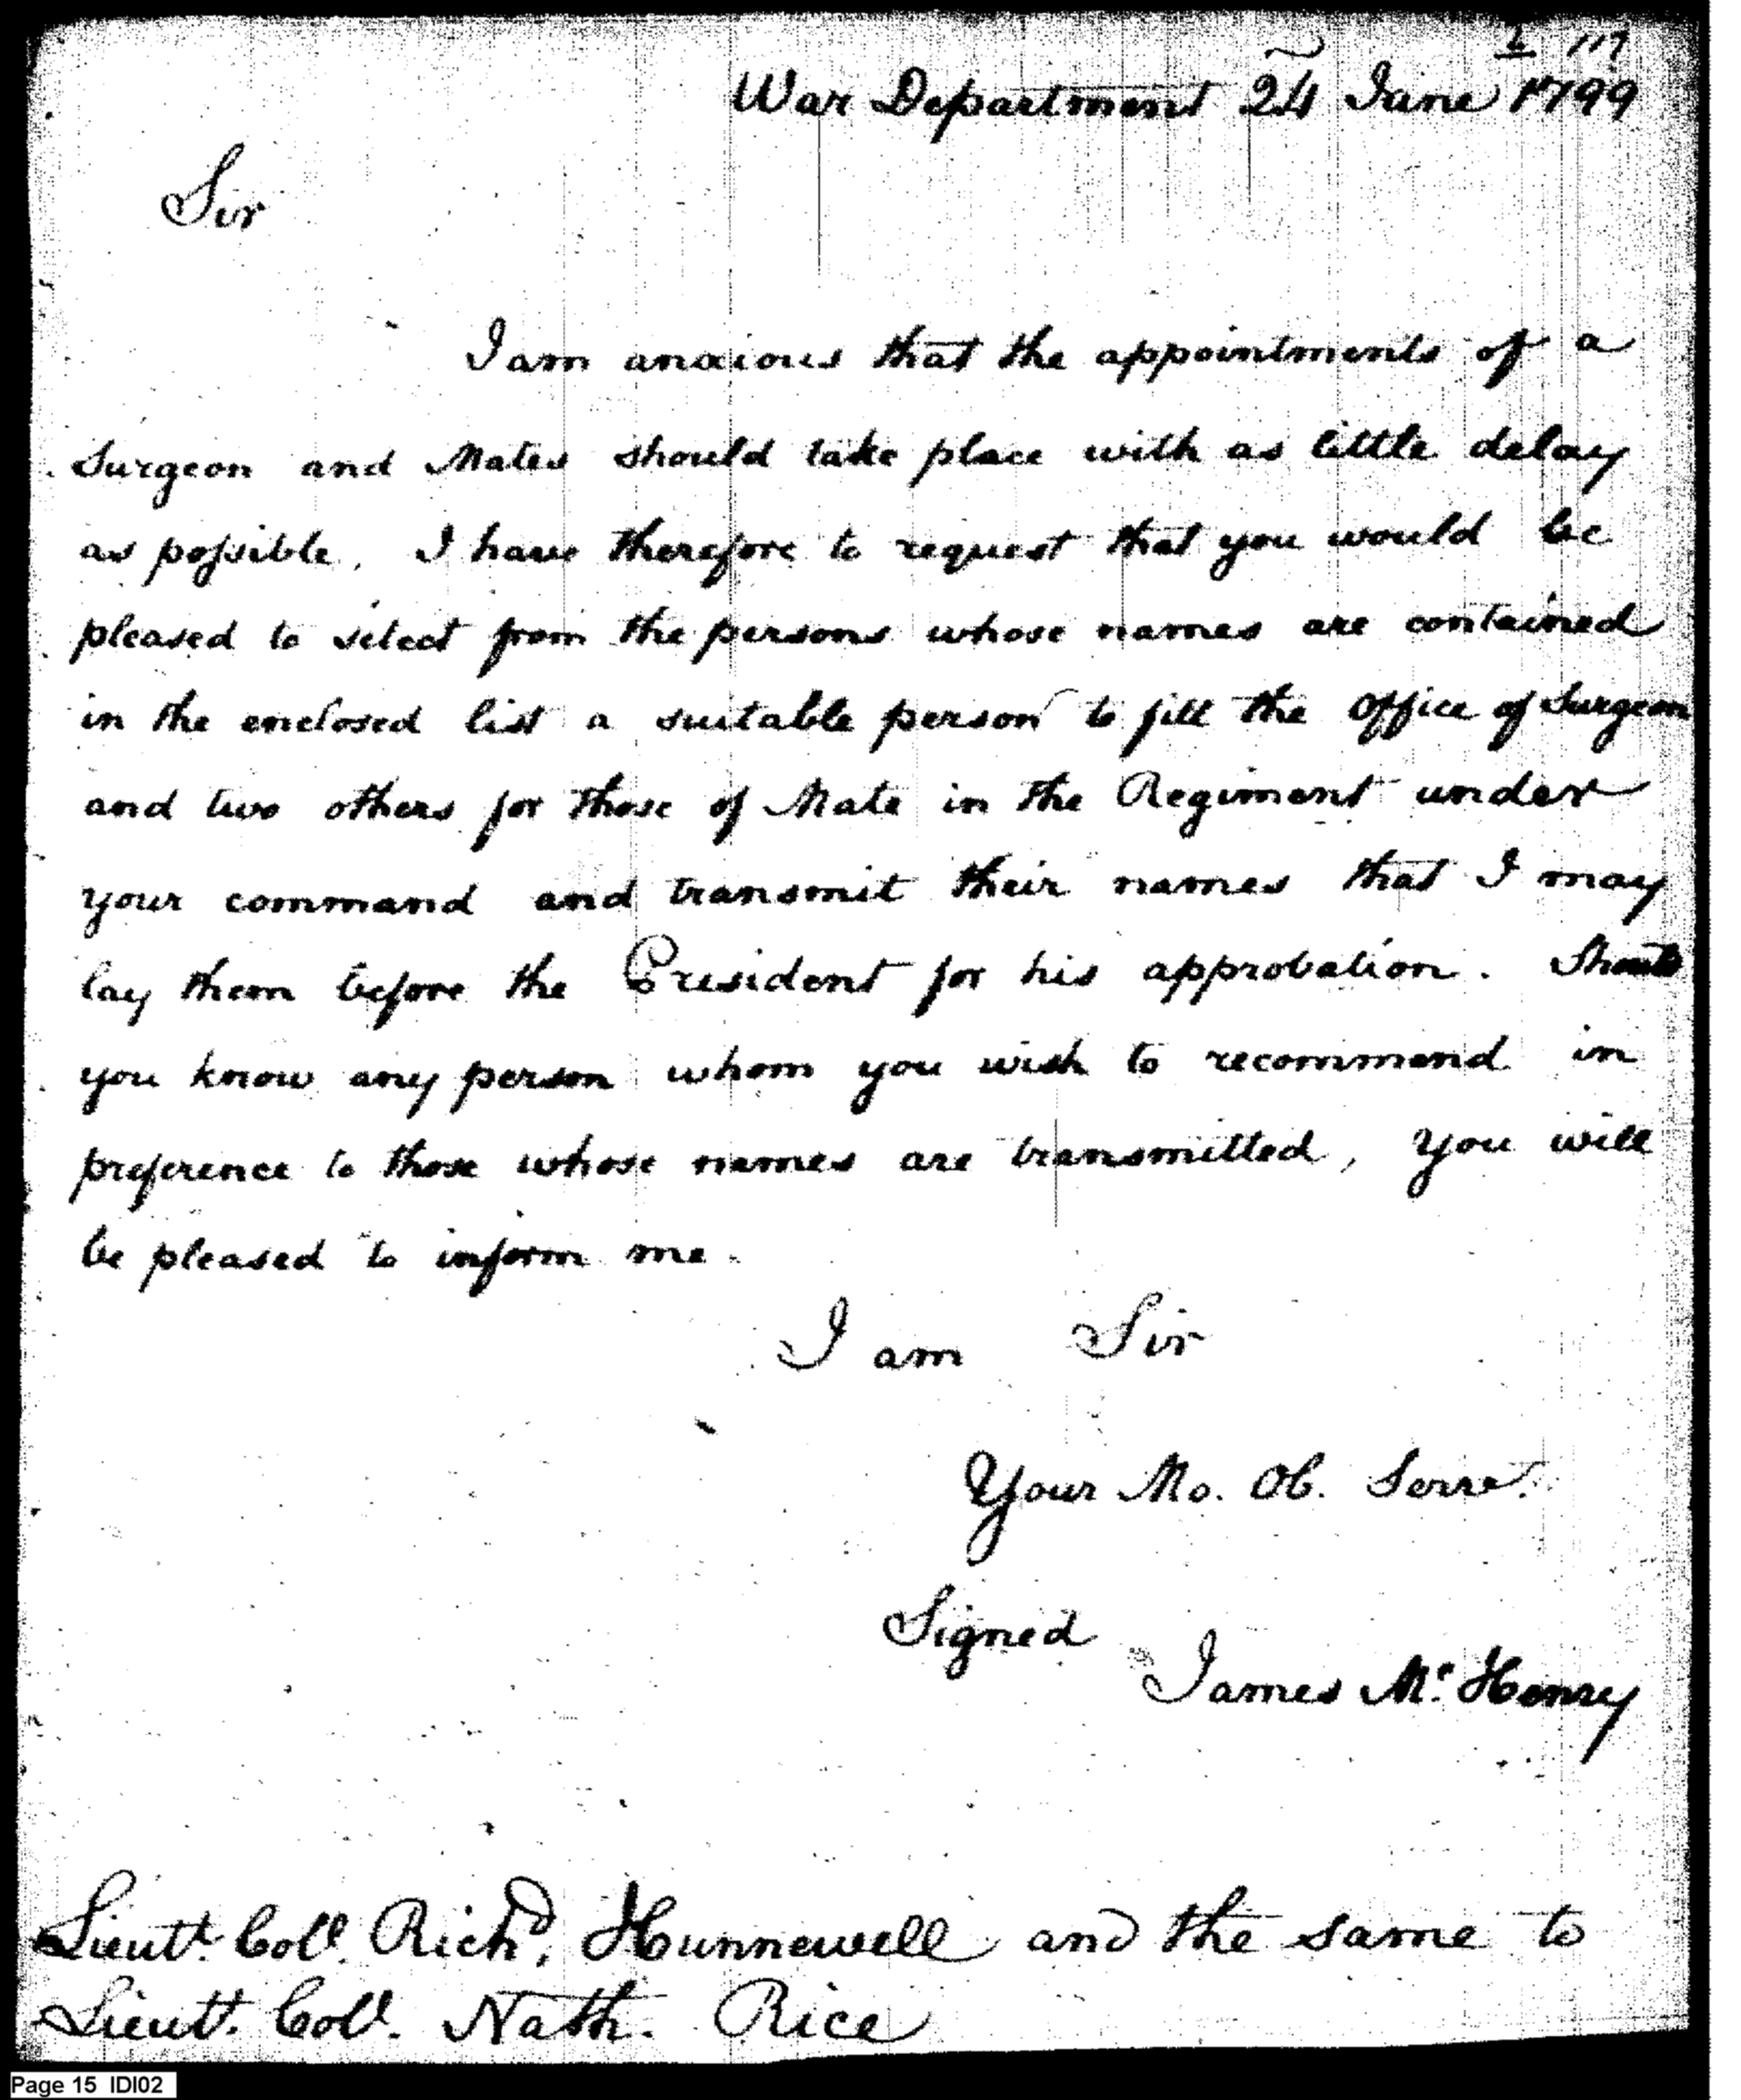 117
War Department 24 June 1799
Sir
I am anxious that the appointments of a
Surgeon and Mates should take place with as little delay
as poſsible. I have therefore to request that you would be
pleased to select from the persons whose names are contained
in the enclosed list a suitable person to fill the Office of Surgeon
and two others for those of Mate in the Regiment under
your command and transmit their names that I may
lay them before the President for his approbation. Should
you know any person whom you wish to recommend in
preference to those whose names are transmitted, you will
be pleased to inform me.
I am Sir
Your Mo. Ob. Serv.
Signed
James Mc. Henry
Lieut. Col. Richd. Hunnewell and the same to
Lieut. Col. Nath. Rice
Page 15 IDI02